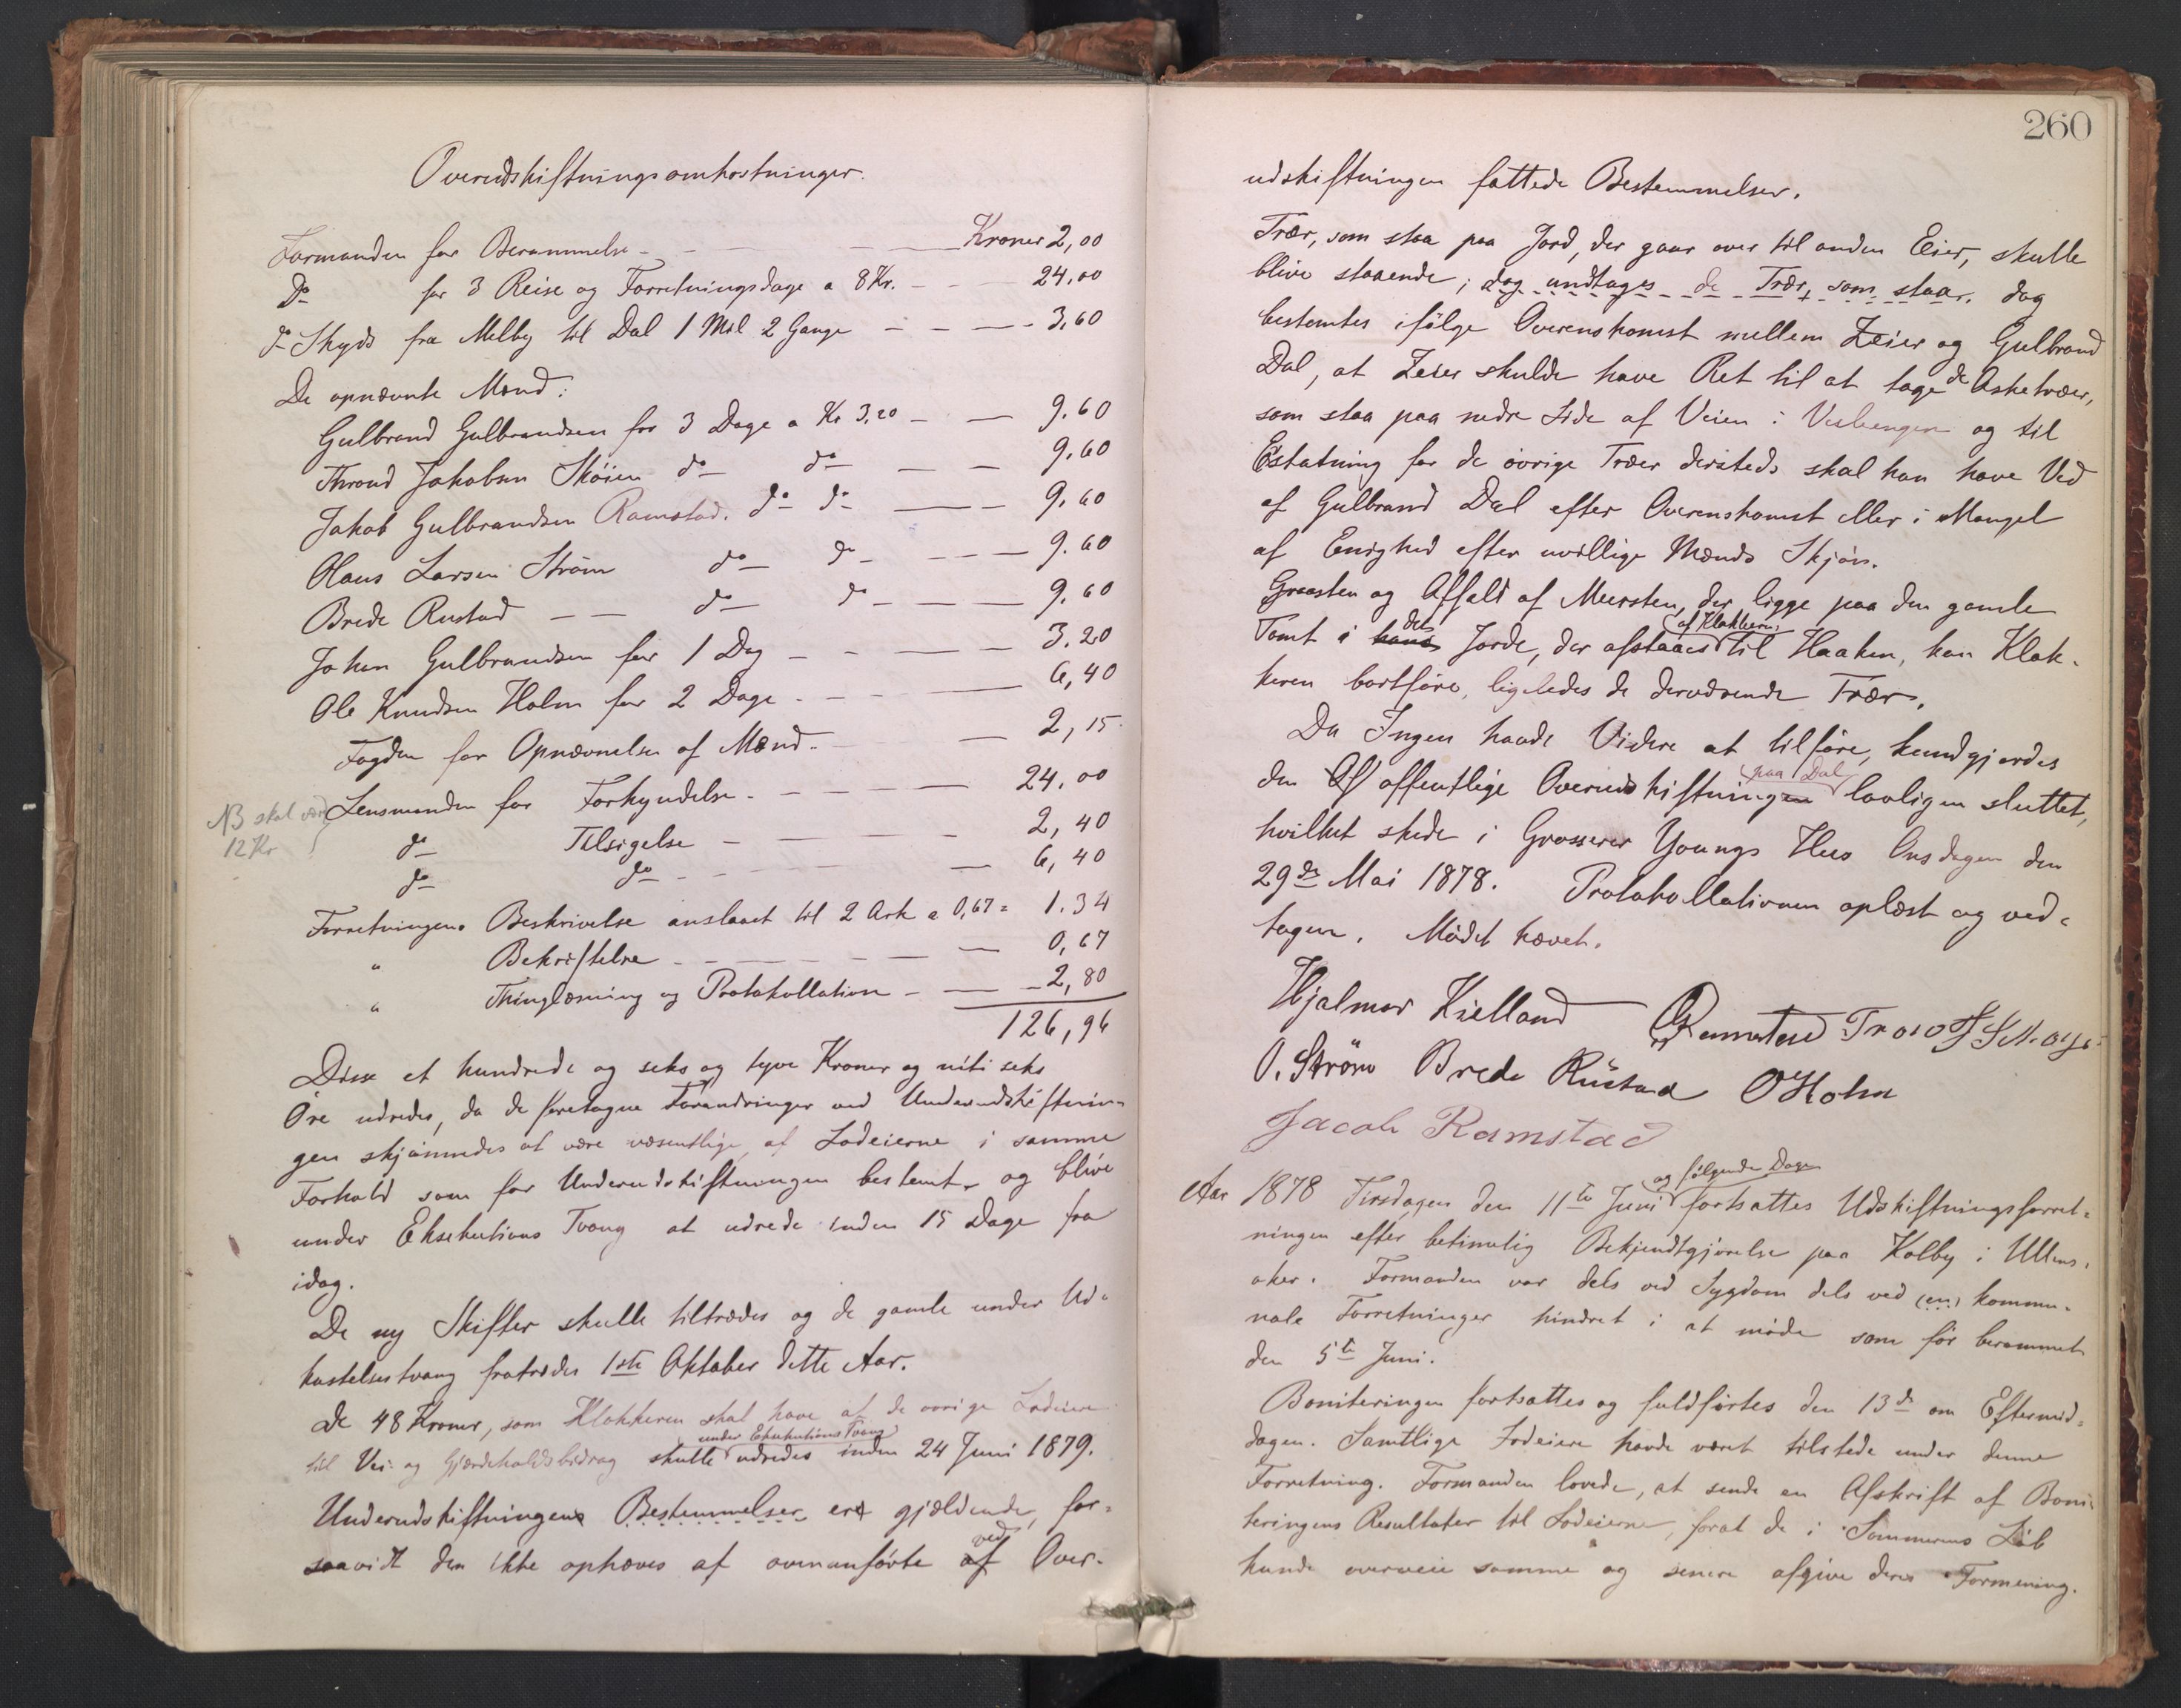 Overudskiftningsomkostninger.
Formanden for Berammelse - - - Kroner 2,00
Do for 3 Reise og Forretningsdage a 8 Kr. - - 24,00
do Skyds fra Melby til Dal 1 Mil 2 Gange - - - 3,60
De opnævnte Mænd:
Gulbrand Gulbrandsen for 3 Dage a Kr 3,20 - - 9.60
Thrond Jakobsen Skøien do do - - 9.60
Jakob Gulbrandsen Ramstad. do do - - 9.60
Olaus Larsen Strøm do do - - - 9.60
Brede Rustad - - do do - - - 9.60
Johan Gulbrandsen for 1 Dag - - - - 3.20
Ole Knudsen Holm for 2 Dage - - - 6,40
Fogden for Opnævnelse af Mænd - - 2,15
NB skal være
12 Kr
Lensmanden for Forkyndelse - - - - 24.00
do Tilsigelse - - - - 2,40
do do - - - - 6,40
Forretningens Beskrivelse anslaaet til 2 Ark a 0,67 = 1.34
" Bekræftelse - - - - - 0,67
" Thinglæsning og Protokollation - - - 2,80
126,96
Disse et hundrede og seks og tyve Kroner og niti seks
Øre udredes, da de foretagne Forandringer ved Underudskiftnin-
gen skjønnedes at være væsentlige, af Lodeierne i samme
Forhold som for Underudskiftningen bestemt, og blive
under Eksekutions Tvang at udrede inden 15 Dage fra
idag.
De ny Skifter skulle tiltrædes og de gamle under Ud-
kastelsestvang fratrædes 1ste Oktober dette Aar.
De 48 Kroner, som Klokkeren skal have af de øvrige Lodeiere
under Eksekutions Tvang
til Vei- og Gjærdeholdsbidrag skulle udredes inden 24 Juni 1879.
Underudskiftningens Bestemmelser er gjældende, for-
saavidt den ikke ophæves af ovenanførte ved Over-
260
udskiftningen fattede Bestemmelser.
Trær, som staa paa Jord, der gaar over til anden Eier, skulle
blive staaende; dog undtages de Trær, som staar. dog
bestemtes ifølge Overenskomst mellem Zeier og Gulbrand
Dal, at Zeier skulde have Ret til at tage de Asketræer,
som staa paa nedre Side af Veien i Vesleengen og til
Estatning for de øvrige Træer dersteds skal han have Ved
af Gulbrand Dal efter Overenskomst eller i Mangel
af Enighed efter uvillige Mænds Skjøn.
Graasten og Affald af Mursten, der ligge paa den gamle
det af Klokkeren
Tomt i hans Jorde, der afstaaes til Haaken, kan Klok-
keren bortføre, ligeledes de derværende Trær.
Da Ingen havde Videre at tilføre, kundgjordes
paa Dal
den Of offentlige Overudskiftningen lovligen sluttet,
hvilket skede i Grosserer Youngs Hus Onsdagen den
29de Mai 1878. Protokollationen oplæst og ved-
tagen. Mødet hævet.
Hjalmar Kielland Ramstad
O. Strøm Brede Rüstad O Holm
Jacob Ramstad
og følgende Dage
Aar 1878 Tirsdagen den 11te Juni fortsattes Udskiftningsforret-
ningen efter betimelig Bekjendtgjørelse paa Kolby i Ullens-
aker. Formanden var dels ved Sygdom dels ved (en) kommu-
nale Forretninger hindret i at møde som før berammet
den 5te Juni.
Boniteringen fortsattes og fuldførtes den 13de om Eftermid-
dagen. Samtlige Lodeiere havde været tilstede under denne
Forretning. Formanden lovede, at sende en Afskrift af Boni-
teringens Resultater til Lodeierne, forat de i Sommerens Løb
kunde overveie samme og senere afgive deres Formening.